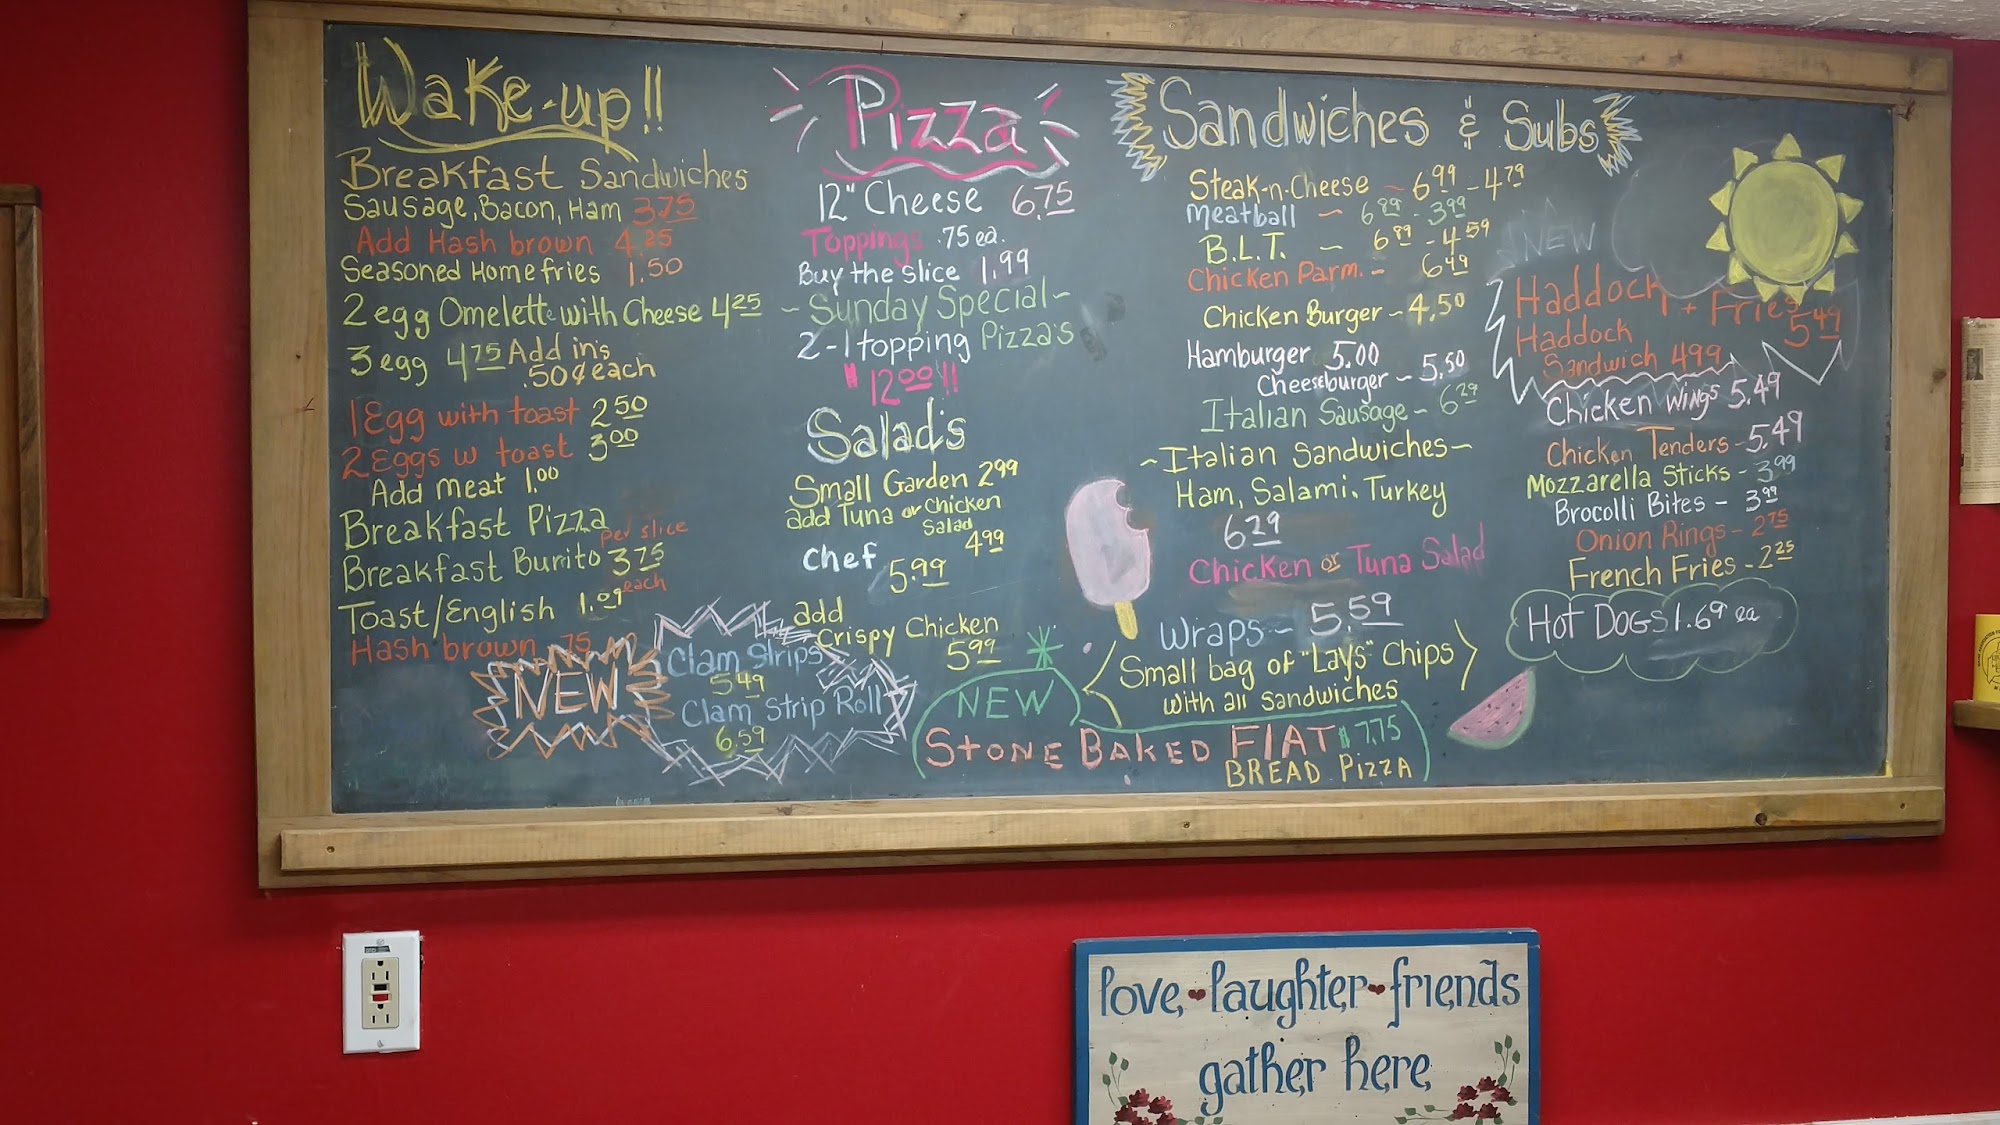 Wake-up!!
Breakfast Sandwiches
Sausage, Bacon, Ham 3.75
Add Hash brown 4.25
Seasoned Home fries 1.50
2 egg Omelette with Cheese 4.25
3 egg 4.75 Add in's
.50¢ each
1 Egg with toast 2.50
2 Eggs w toast 3.00
Add meat 1.00
Breakfast Pizza
per slice
Breakfast Burito 3.75
each
Toast/English 1.09
Hash brown .75
NEW
Clam Strips
5.49
Clam Strip Roll
6.59
Pizza
12" Cheese 6.75
Toppings .75 ea.
Buy the slice 1.99
~ Sunday Special ~
2-1 topping Pizza's
$12.00!!
Salad's
Small Garden 2.99
add Tuna or Chicken
Salad
4.99
Chef 5.99
add
Crispy Chicken
5.99
NEW
STONE BAKED FlAT $7.75
BREAD PIZZA
Sandwiches & Subs
Steak-n-Cheese ~ 6.99 - 4.79
Meatball ~ 6.89 - 3.99
B.L.T. ~ 6.89 - 4.59
Chicken Parm. - 6.49
Chicken Burger ~ 4.50
Hamburger 5.00
Cheeseburger ~ 5.50
Italian Sausage ~ 6.29
~Italian Sandwiches~
Ham, Salami, Turkey
6.29
Chicken or Tuna Salad
5.59
Wraps ~
Small bag of "Lays" Chips
with all sandwiches
NEW
Haddock + Fries
5.49
Haddock
Sandwich 4.99
Chicken Wings 5.49
Chicken Tenders - 5.49
Mozzarella Sticks - 3.99
Brocolli Bites - 3.99
Onion Rings - 2.75
French Fries - 2.25
HOT DOGS 1.69 ea
love laughter friends
gather here